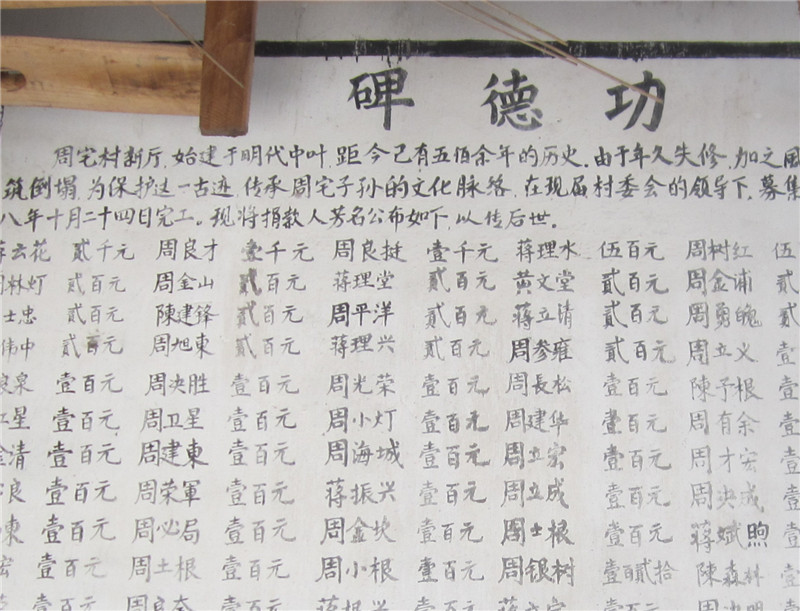 碑德功
周宅村新厅，始建于明代中叶，距今已有五佰余年的历史。由于年久失修，加之风
筑倒塌，为保护这一古迹，传承周宅子孙的文化脉络，在现届村委会的领导下，募集
八年十月二十四日完工。现将捐款人芳名公布如下，以传后世。
云花 贰千元 周良才 壹千元 周良挺 壹千元 蒋理水 伍百元 周树红 伍
林灯 贰百元 周金山 贰百元 蒋理堂 贰百元 黄文堂 贰百元 周金浦 贰
士忠 贰百元 陳建鋒 贰百元 周平洋 贰百元 蒋立清 贰百元 周勇 贰
伟中 贰百元 周旭東 贰百元 蒋理兴 贰百元 周参雍 贰百元 周立义 壹
泉 壹百元 周决胜 壹百元 周光荣 壹百元 周長松 壹百元 陳予根 壹
星 壹百元 周卫星 壹百元 周小灯 壹百元 周建华 壹百元 周有余 壹
清 壹百元 周建東 壹百元 周海城 壹百元 周立宏 壹百元 周才宏 壹
良 壹百元 周荣軍 壹百元 蒋振兴 壹百元 周立成 壹百元 周决成 壹
東 壹百元 周必局 壹百元 周金坎 壹百元 周士根 壹百元 蒋斌煦
宏 壹百元 周土根 壹百元 周小根 壹百元 周银树 壹百贰拾 陳森